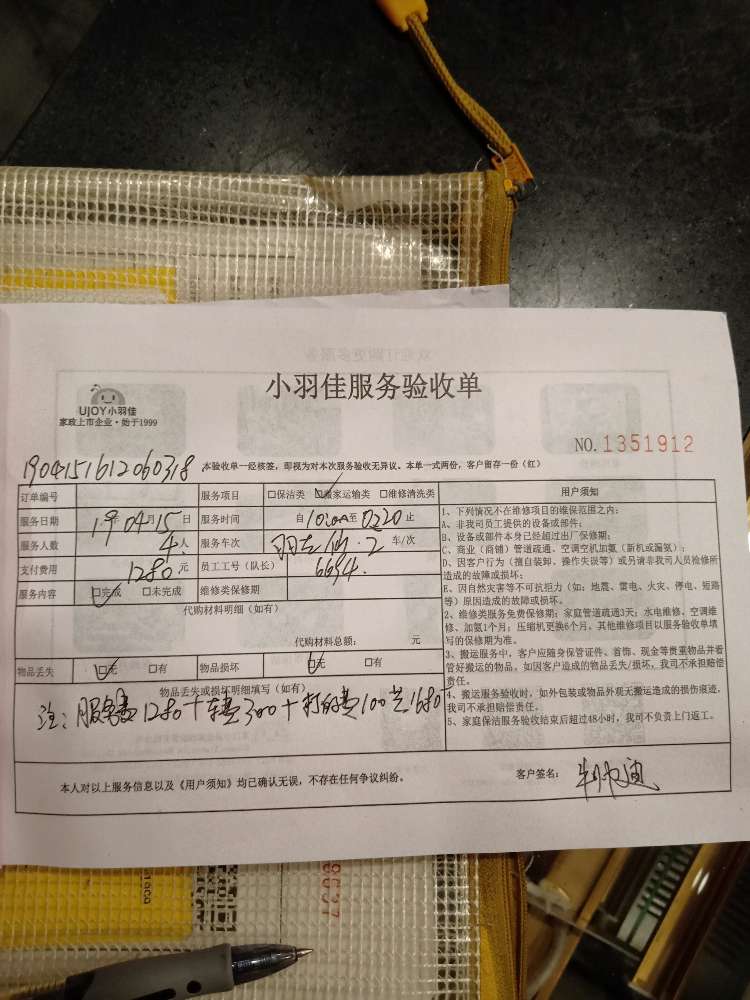 小羽佳服务验收单
UJOY小羽佳
家政上市企业·始于1999
NO. 1351912
1904151612060318
本验收单一经核签，即视为对本次服务验收无异议。本单一式两份，客户留存一份（红）
订单编号 服务项目 □保洁类 □搬家运输类 □维修清洗类
服务日期 19年04月15日 服务时间 自 至0220止
服务人数 4人 服务车次 2 车/次
支付费用 1280元 员工工号（队长） 6654.
服务内容 □完成 □未完成 维修类保修期
代购材料明细（如有）
代购材料总额： 元
物品丢失 □无 □有 物品损坏 □无 □有
物品丢失或损坏明细填写（如有）
注：服务费1280+车费300+打的费100共1680
用户须知
1、下列情况不在维修项目的维保范围之内：
A、非我司员工提供的设备或部件；
B、设备或部件本身已经超出厂保修期；
C、商业（商铺）管道疏通、空调空机加氨（新机或漏氨）；
D、因客户行为（擅自装卸、操作失误等）或另请非我司人员检修所
造成的故障或损坏；
E、因自然灾害等不可抗力（如：地震、雷电、火灾、停电、短路
等）原因造成的故障或损坏。
2、维修类服务免费保修期：家庭管道疏通3天；水电维修、空调维
修、加氨1个月；压缩机更换6个月。其他维修项目以服务验收单填
写的保修期为准。
3、搬运服务中，客户应随身保管证件、首饰、现金等贵重物品并看
管好搬运的物品，如因客户造成的物品丢失/损坏，我司不承担赔偿
责任。
4、搬运服务验收时，如外包装或物品外观无搬运造成的损伤痕迹，
我司不承担赔偿责任。
5、家庭保洁服务验收结束后超过48小时，我司不负责上门返工。
本人对以上服务信息以及《用户须知》均已确认无误，不存在任何争议纠纷。
客户签名：